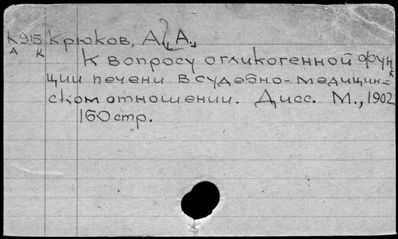 К915 Крюков, А. А.
А К К вопросу о гликогенной функ
ции печени в судебно-медицин-
ском отношении. Дисс. М., 1902.
160 стр.